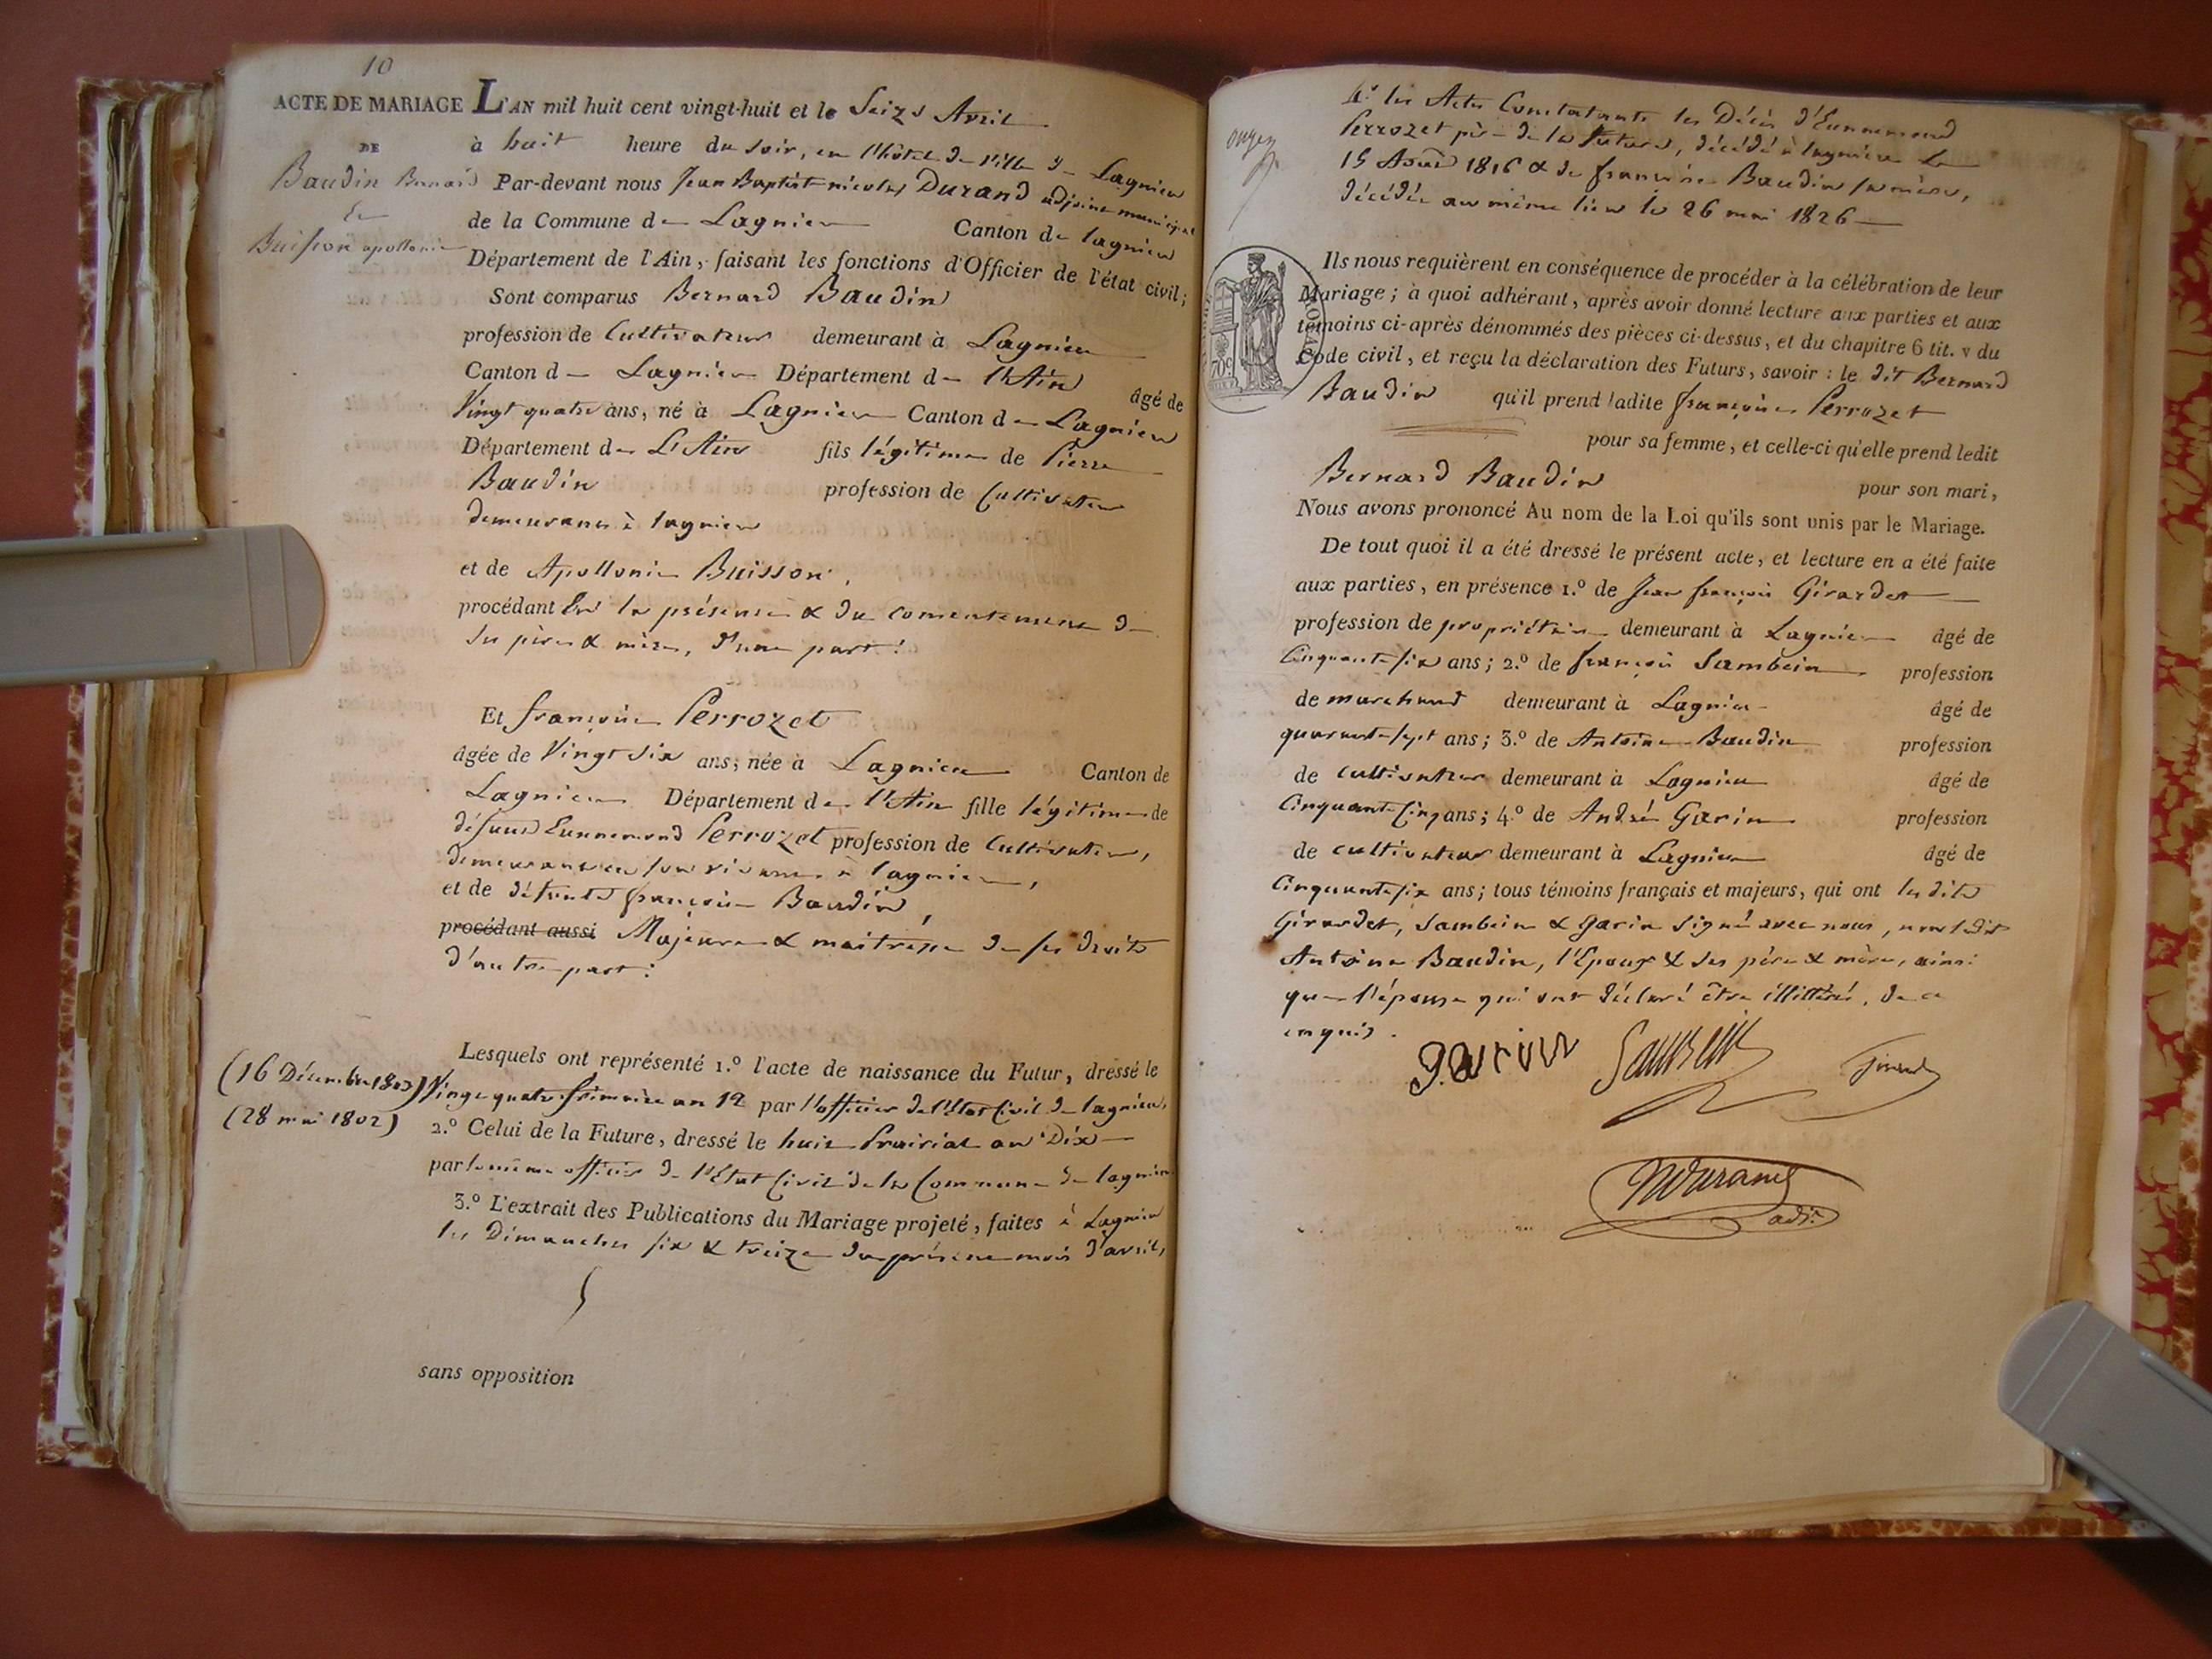 10
ACTE DE MARIAGE
DE
Baudin Bernard
&
Buisson apollonie
L'AN mil huit cent vingt-huit et le Seize Avril
à huit heure du soir, en l'hôtel de ville de Lagnieu
Par-devant nous Jean Baptiste nicolas Durand adjoint municipal
de la Commune de Lagnieu Canton de lagnieu
Département de l'Ain, faisant les fonctions d'Officier de l'état civil;
Sont comparus Bernard Baudin
profession de Cultivateur demeurant à Lagnieu
Canton de Lagnieu Département de l'Ain âgé de
Vingt quatre ans, né à Lagnieu Canton de Lagnieu
Département de L'Ain fils légitime de Pierre
Baudin profession de Cultivateur
demeurant à lagnieu
et de Apollonie Buisson,
procédant En la présence & du consentement de
ses père & mère, d'une part:
Et françoise Perrozet
âgée de Vingt six ans, née à Lagnieu Canton de
Lagnieu Département de l'Ain fille légitime de
défunt Ennemond Perrozet profession de Cultivateur,
demeurant en son vivant à lagnieu,
et de défunte françoise Baudin,
procédant aussi Majeure & maitresse de ses droits
d'autre part:
Lesquels ont représenté 1.º l'acte de naissance du Futur, dressé le
(16 Décembre 1803) Vingt quatre frimaire an 12 par l'officier de l'Etat Civil de lagnieu,
(28 mai 1802) 2.º Celui de la Future, dressé le huit Prairial an Dix
par le même officier de l'Etat Civil de la Commune de lagnieu
3.º L'extrait des Publications du Mariage projeté, faites à Lagnieu
les Dimanches six & treize du présent mois d'avril,
sans opposition
4.º les Actes Constatants les Décès d'Ennemond
Perrozet père de la future, décédé à lagnieu le
15 Aout 1816 & de françoise Baudin sa mère,
décédée au même lieu le 26 mai 1826
Ils nous requièrent en conséquence de procéder à la célébration de leur
Mariage; à quoi adhérant, après avoir donné lecture aux parties et aux
témoins ci-après dénommés des pièces ci-dessus, et du chapitre 6 tit. v du
Code civil, et reçu la déclaration des Futurs, savoir: le dit Bernard
Baudin qu'il prend ladite françoise Perrozet
pour sa femme, et celle-ci qu'elle prend ledit
Bernard Baudin pour son mari,
Nous avons prononcé Au nom de la Loi qu'ils sont unis par le Mariage.
De tout quoi il a été dressé le présent acte, et lecture en a été faite
aux parties, en présence 1.º de Jean françois Girardet
profession de propriétaire demeurant à Lagnieu âgé de
Cinquante six ans; 2.º de françois Sambein profession
de marchand demeurant à Lagnieu âgé de
quarante sept ans; 3.º de Antoine Baudin profession
de cultivateur demeurant à Lagnieu âgé de
Cinquante Cinq ans; 4.º de André Garin profession
de cultivateur demeurant à Lagnieu âgé de
Cinquante six ans; tous témoins français et majeurs, qui ont les dits
Girardet, Sambein & Garin signé avec nous, non ledit
Antoine Baudin, l'Epoux & ses père & mère, ainsi
que l'épouse qui ont déclaré être illittérés, de ce
enquis.
garin Sambein Girardet
NDurand
adj.t